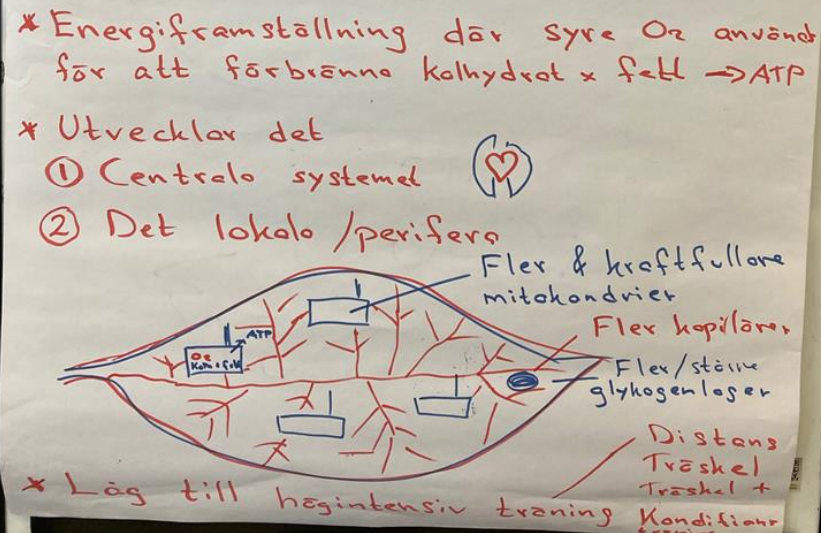 * Energiframställning där syre O2 används
för att förbränna kolhydrat x fett → ATP
* Utvecklar det
① Centrala systemet
② Det lokala /perifera
Fler & kraftfullare
mitokondrier
Fler kapilärer
ATP
O2
Kolh + fett
Fler/större
glykogenlager
Distans
Tröskel
Tröskel +
* Låg till högintensiv träning
Konditions